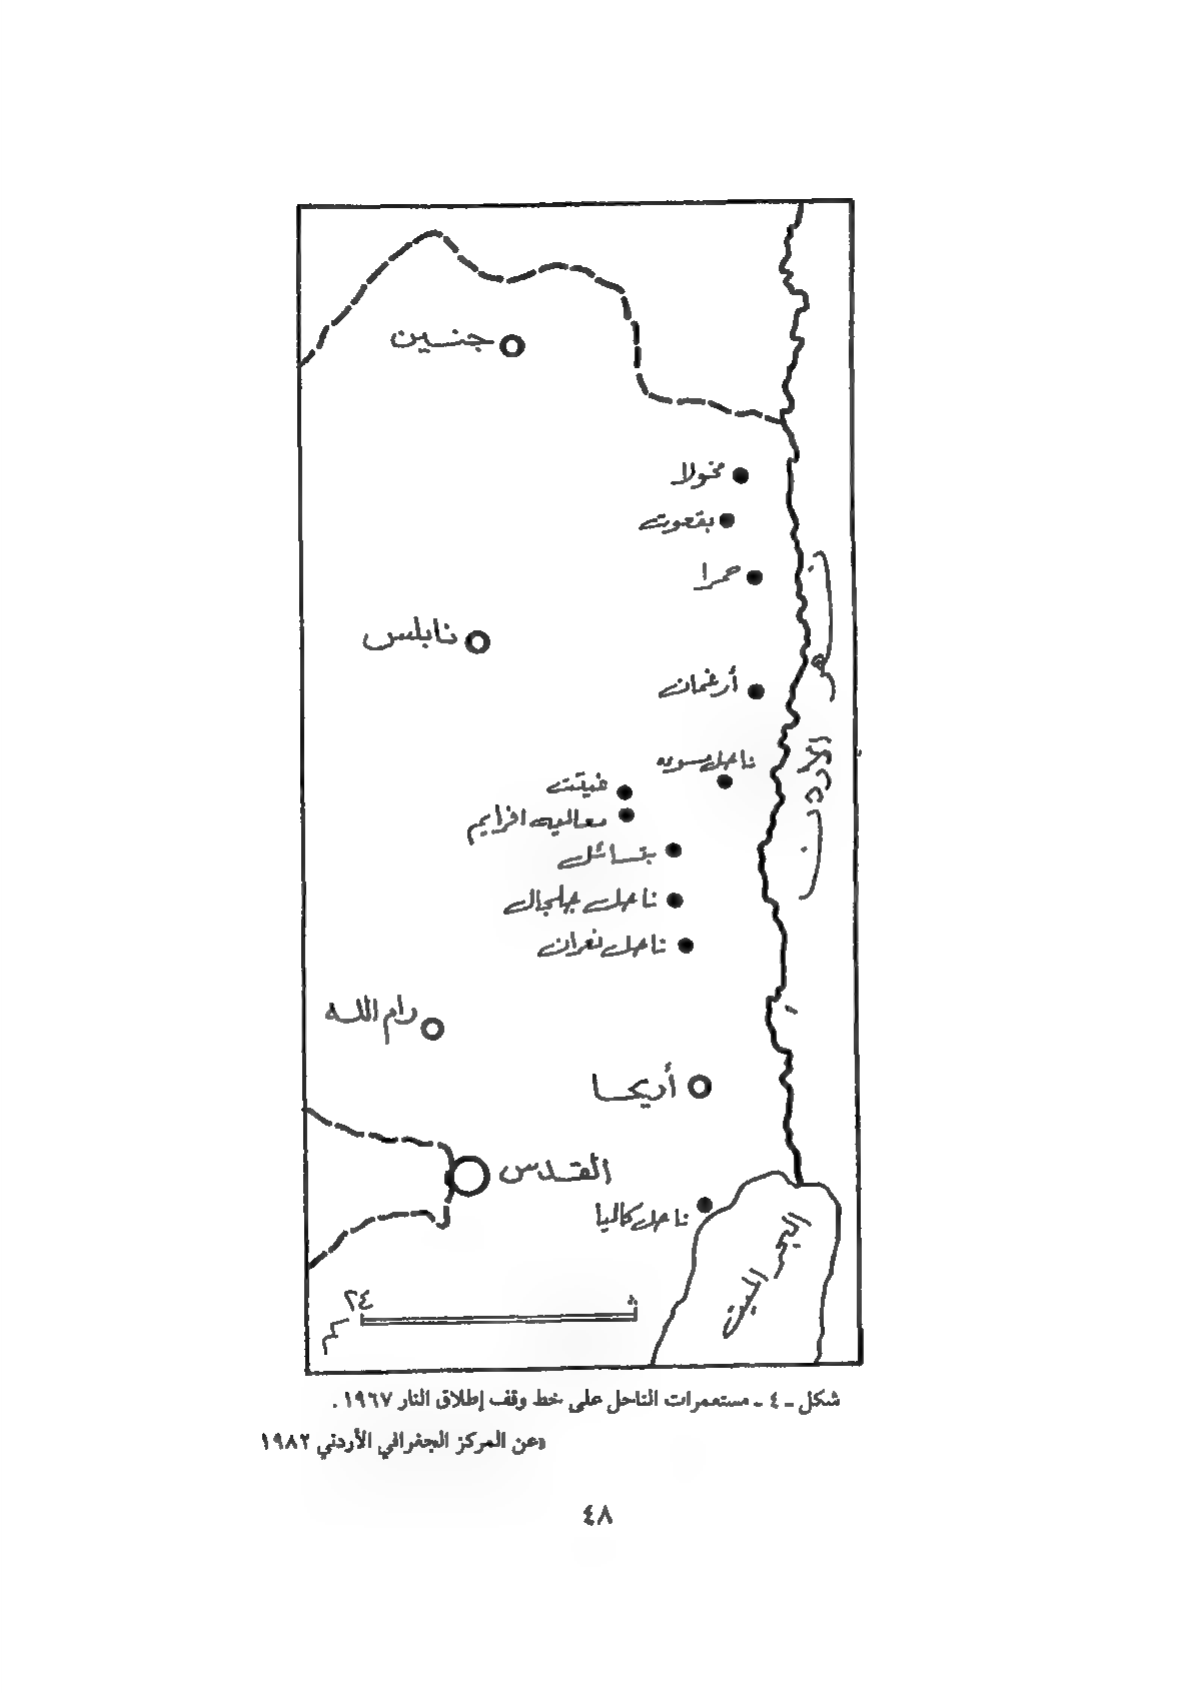 جنين
مخولا
بقعوت
حمرا
نهر الأردن
نابلس
أرغمان
ناحل مسويه
فيتت
معاليه افرايم
بتسائل
ناحل جلجال
ناحل نعران
رام الله
أريحا
القدس
ناحل كاليا
البحر الميت
٢٤
كم
شكل ـ ٤ ـ مستعمرات الناحل على خط وقف إطلاق النار ١٩٦٧ .
«عن المركز الجغرافي الأردني ١٩٨٢
٤٨